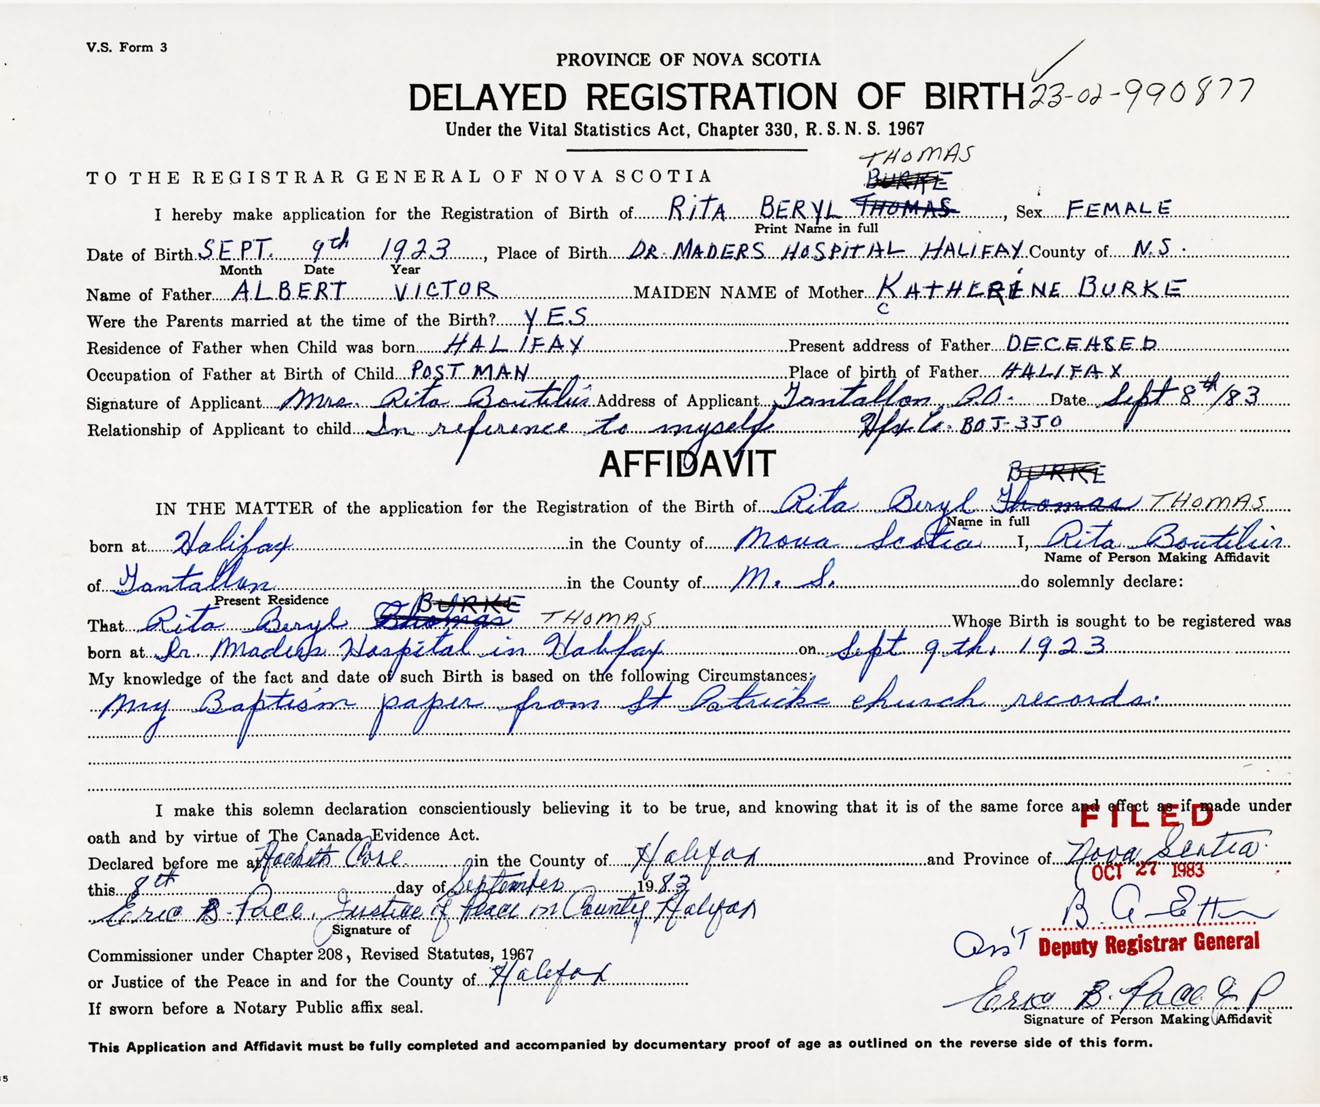 V.S. Form 3
PROVINCE OF NOVA SCOTIA
DELAYED REGISTRATION OF BIRTH 23-02-990877
Under the Vital Statistics Act, Chapter 330, R.S.N.S. 1967
THOMAS
TO THE REGISTRAR GENERAL OF NOVA SCOTIA BURKE
I hereby make application for the Registration of Birth of RITA BERYL THOMAS, Sex FEMALE
Print Name in full
Date of Birth SEPT. 9th 1923, Place of Birth DR. MADERS HOSPITAL HALIFAY County of N.S.
Month Date Year
Name of Father ALBERT VICTOR MAIDEN NAME of Mother KATHERINE BURKE
C
Were the Parents married at the time of the Birth? YES
Residence of Father when Child was born HALIFAY Present address of Father DECEASED
Occupation of Father at Birth of Child POSTMAN Place of birth of Father HALIFAX
Signature of Applicant Mrs. Rita Boutilier Address of Applicant Tantallon P.O. Date Sept 8th/83
Relationship of Applicant to child In reference to myself Hfx Co. BOJ-3JO
AFFIDAVIT
BURKE
IN THE MATTER of the application for the Registration of the Birth of Rita Beryl Thomas THOMAS
Name in full
born at Halifax in the County of Nova Scotia I, Rita Boutilier
Name of Person Making Affidavit
of Tantallon in the County of N. S. do solemnly declare:
Present Residence BURKE
That Rita Beryl Thomas THOMAS Whose Birth is sought to be registered was
born at Dr. Maders Hospital in Halifax on Sept 9th, 1923
My knowledge of the fact and date of such Birth is based on the following Circumstances:
My Baptism paper from St Patricks church records.
I make this solemn declaration conscientiously believing it to be true, and knowing that it is of the same force and effect as if made under
FILED
oath and by virtue of The Canada Evidence Act.
Declared before me at Cove in the County of Halifax and Province of Nova Scotia.
OCT 27 1983
this 8th day of September 1983
Eric B. Pace, Justice of Peace in County Halifax
Signature of
Ass't Deputy Registrar General
Commissioner under Chapter 208, Revised Statutes, 1967
or Justice of the Peace in and for the County of Halifax
Eric B. Pace J P
If sworn before a Notary Public affix seal.
Signature of Person Making Affidavit
This Application and Affidavit must be fully completed and accompanied by documentary proof of age as outlined on the reverse side of this form.